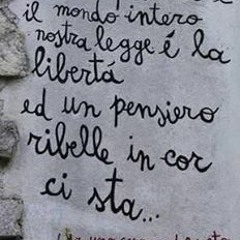 il mondo intero
nostra legge é la
libertá
ed un pensiero
ribelle in cor
ci sta...